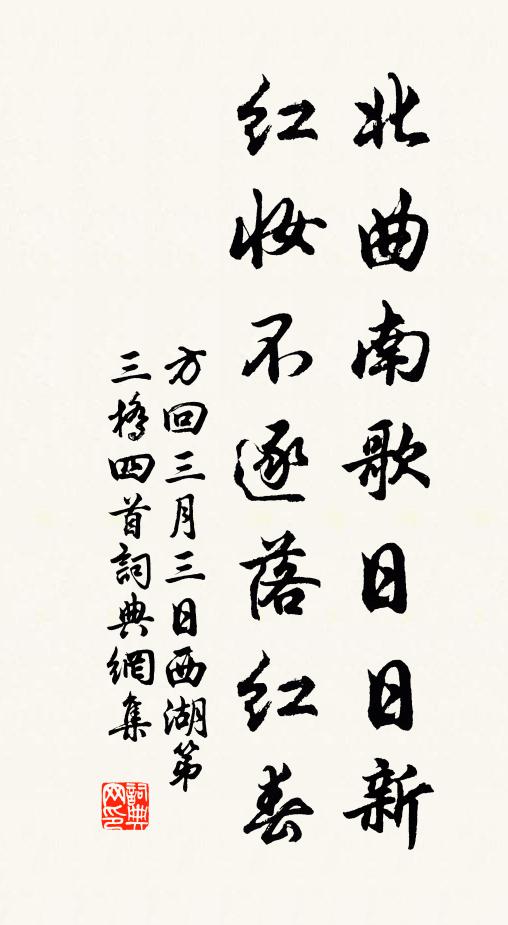 北曲南歌日日新
红妆不逐落红春
方回三月三日西湖第
三橋四首詞典網集
詞典网印